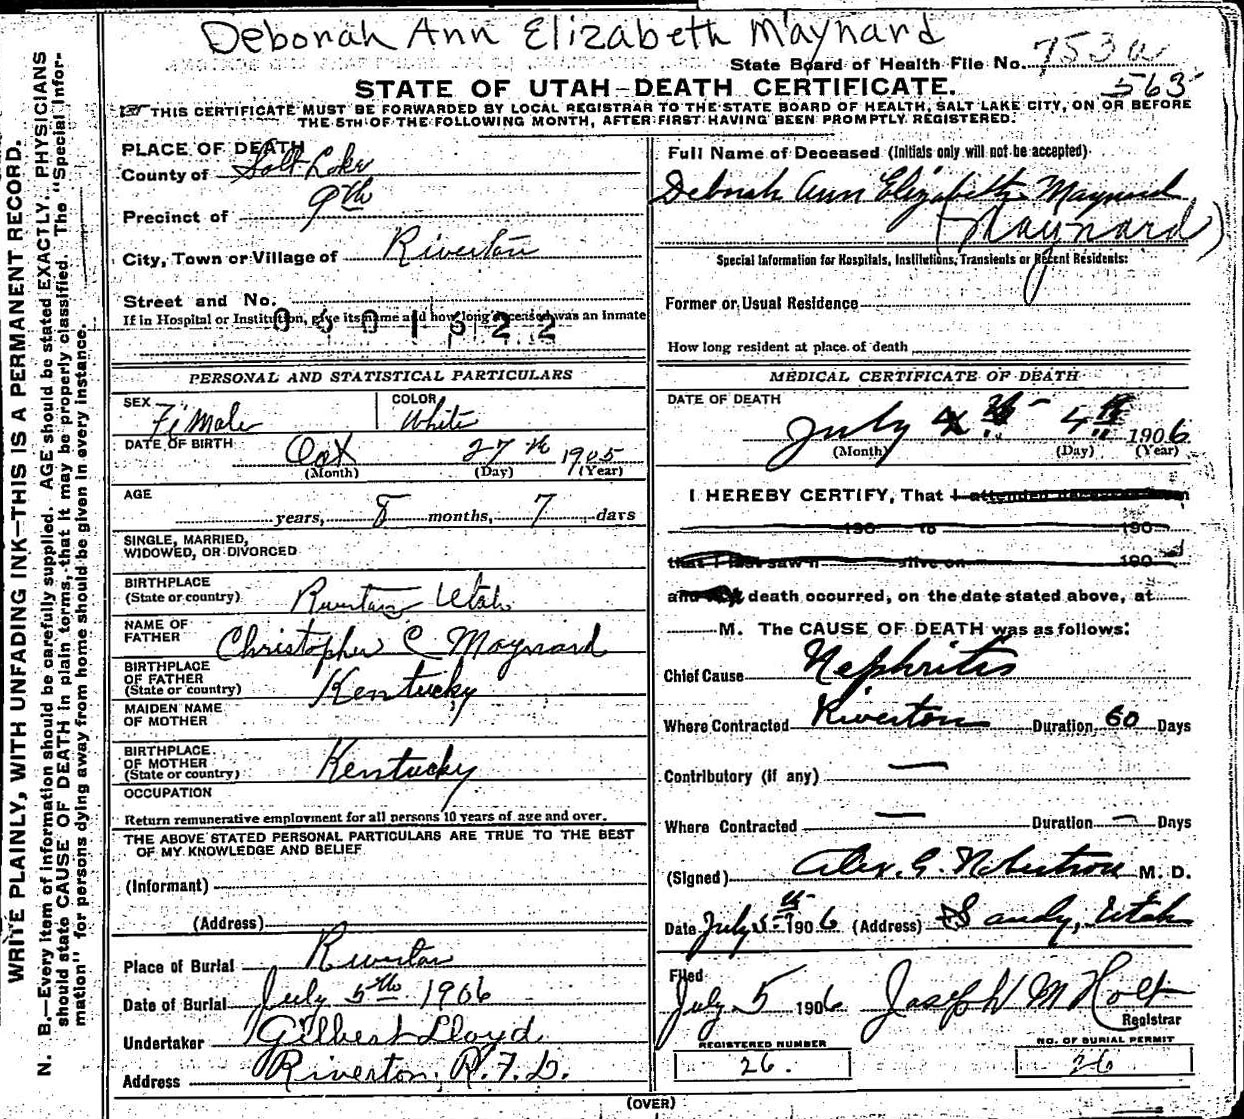 Deborah Ann Elizabeth Maynard
State Board of Health File No. 753a
563
STATE OF UTAH—DEATH CERTIFICATE.
THIS CERTIFICATE MUST BE FORWARDED BY LOCAL REGISTRAR TO THE STATE BOARD OF HEALTH, SALT LAKE CITY, ON OR BEFORE
THE 5TH OF THE FOLLOWING MONTH, AFTER FIRST HAVING BEEN PROMPTLY REGISTERED.
WRITE PLAINLY, WITH UNFADING INK—THIS IS A PERMANENT RECORD.
N. B.—Every item of information should be carefully supplied. AGE should be stated EXACTLY. PHYSICIANS
should state CAUSE OF DEATH in plain terms, that it may be properly classified. The "Special Infor-
mation" for persons dying away from home should be given in every instance.
PLACE OF DEATH
County of Salt Lake
Precinct of 9th
City, Town or Village of Riverton
Street and No.
If in Hospital or Institution, give its name and how long deceased was an inmate
0601622
PERSONAL AND STATISTICAL PARTICULARS
SEX Female COLOR White
DATE OF BIRTH Oct 27th 1905
(Month) (Day) (Year)
AGE
years, 8 months, 7 days
SINGLE, MARRIED,
WIDOWED, OR DIVORCED
BIRTHPLACE
(State or country) Riverton Utah
NAME OF
FATHER Christopher C Maynard
BIRTHPLACE
OF FATHER
(State or country) Kentucky
MAIDEN NAME
OF MOTHER
BIRTHPLACE
OF MOTHER
(State or country) Kentucky
OCCUPATION
Return remunerative employment for all persons 10 years of age and over.
THE ABOVE STATED PERSONAL PARTICULARS ARE TRUE TO THE BEST
OF MY KNOWLEDGE AND BELIEF
(Informant)
(Address)
Place of Burial Riverton
Date of Burial July 5th 1906
Undertaker Gilbert Lloyd
Address Riverton, R.F.D.
Full Name of Deceased (Initials only will not be accepted)
Deborah Ann Elizabeth Maynard
(Maynard)
Special Information for Hospitals, Institutions, Transients or Recent Residents:
Former or Usual Residence
How long resident at place of death
MEDICAL CERTIFICATE OF DEATH
DATE OF DEATH
July 4th 1906
(Month) (Day) (Year)
I HEREBY CERTIFY, That I attended deceased from
190 to 190
that I last saw h alive on 190
and that death occurred, on the date stated above, at
M. The CAUSE OF DEATH was as follows:
Chief Cause Nephritis
Where Contracted Riverton Duration 60 Days
Contributory (if any) —
Where Contracted — Duration — Days
(Signed) Alex. G. Robertson M. D.
Date July 5th 1906 (Address) Sandy, Utah
Filed
July 5 1906 Joseph M Holt
Registrar
REGISTERED NUMBER
26.
NO. OF BURIAL PERMIT
26
(OVER)